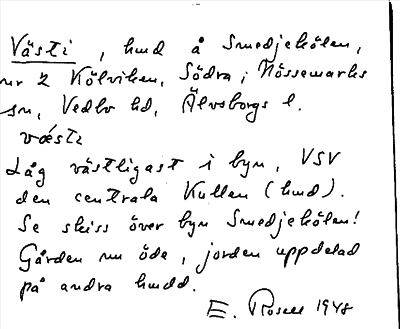 Västi, hmd å Smedjekölen,
nr 2 Kölviken, Södra, i Nössemarks
sn, Vedbo hd, Älvsborgs l.
västi
Låg västligast i byn, VSV
den centrala Kullen (hmd).
Se skiss över byn Smedjekölen!
Gården nu öde, jorden uppdelad
på andra hmdd.
E. Rosell 1948